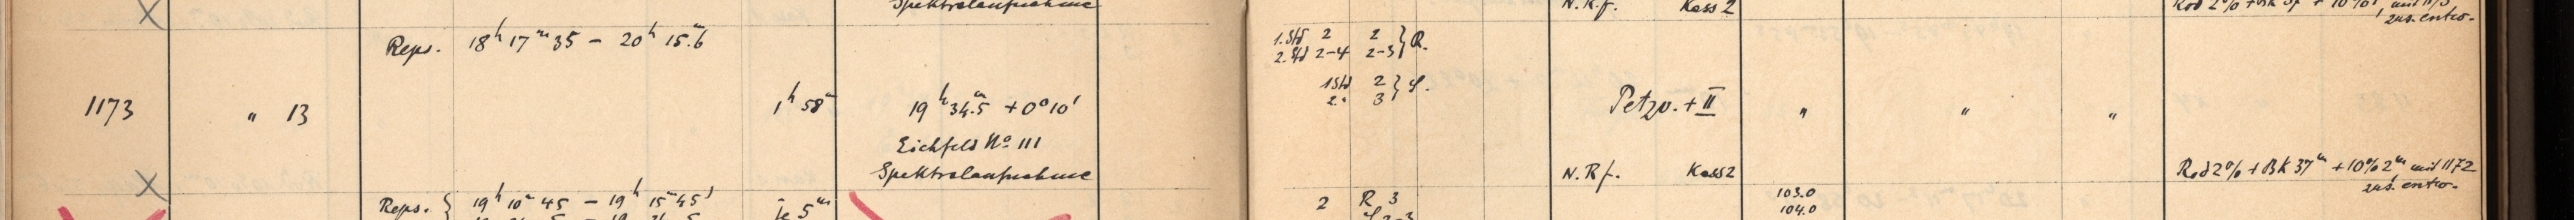 Spektralaufnahme N.R.f. Kass 2 Rod 2% + BK 37 + 10% mit 1173
zus. entw.
Reps. 18h 17m 35 – 20h 15.6 1. Std 2 2 } R.
2. Std 2–4 2–3
1 Std 2 } S.
2. " 3
1173 " 13 1h 58m 19h 34.5m + 0° 10' Petzv. + II " " "
Eichfeld No 111
Spektralaufnahme N.R.f. Kass 2 Rod 2% + BK 37m + 10% 2m mit 1172
zus. entw.
Reps. { 19h 10m 45 – 19h 15m 45s je 5m 2 R 3 103.0
104.0